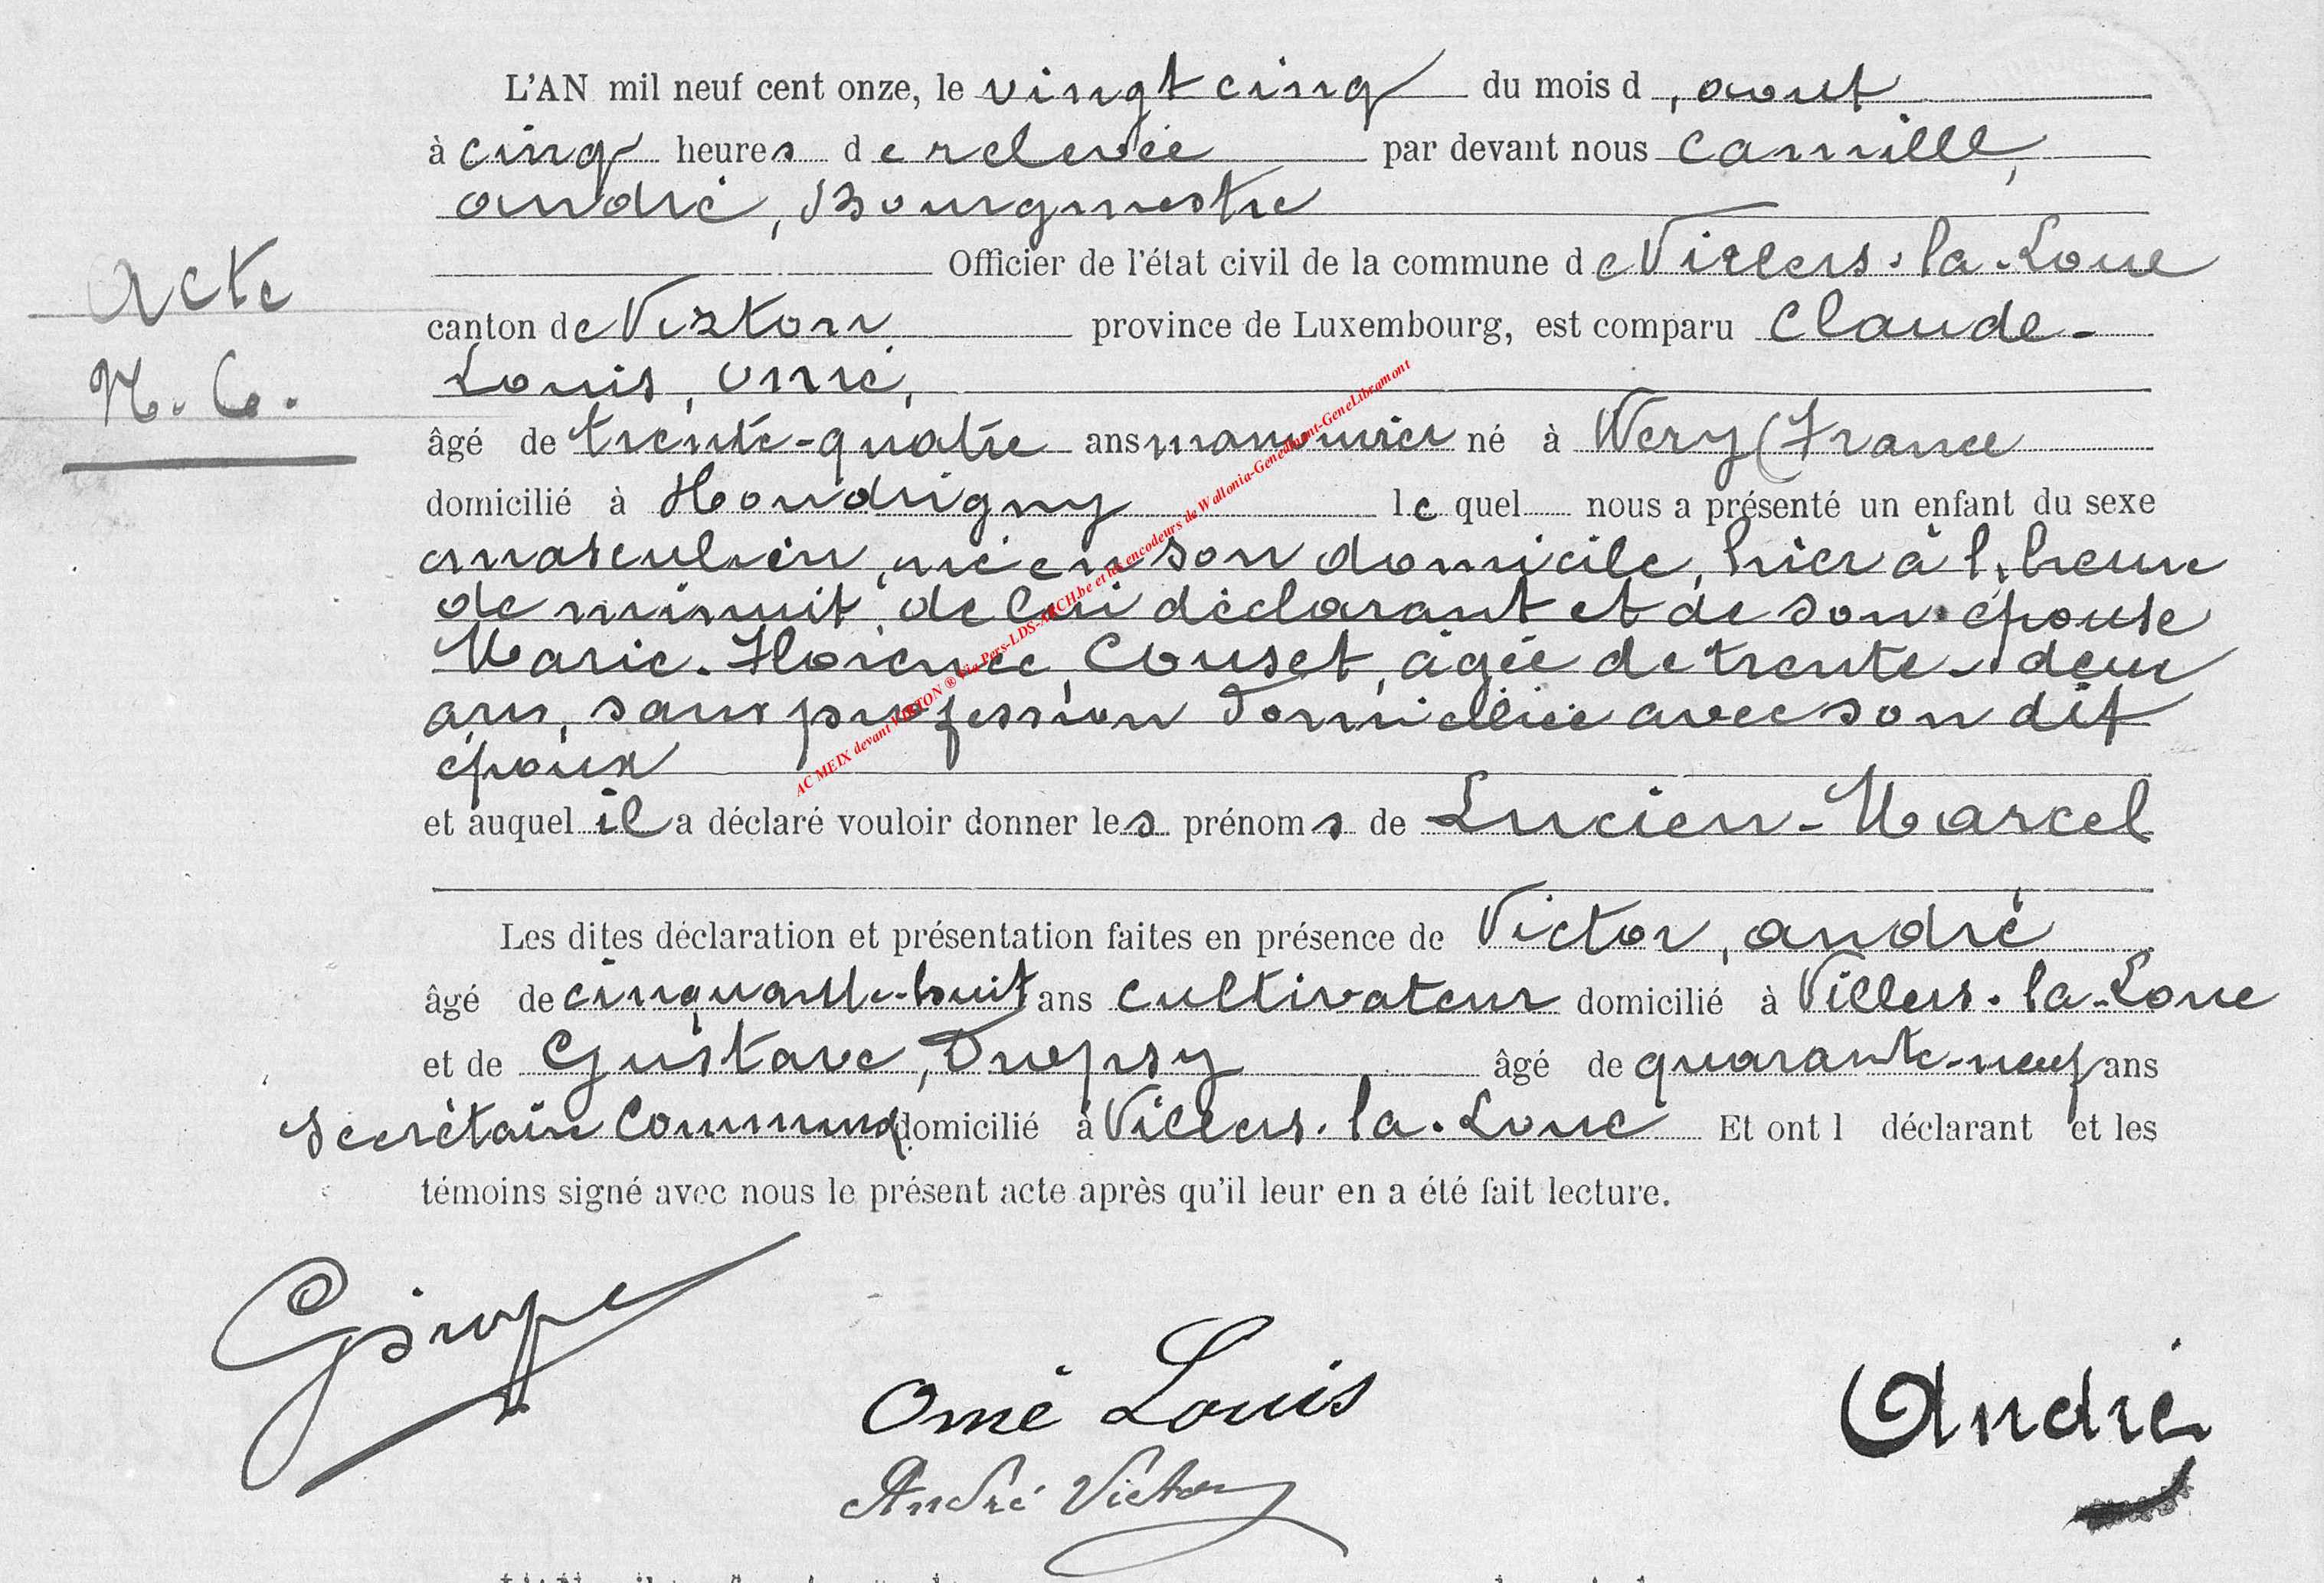 L'AN mil neuf cent onze, le vingt cinq du mois d , aout
à cinq heures de relevée par devant nous Camille,
André, Bourgmestre
Officier de l'état civil de la commune de Villers-la-Loue
canton de Virton province de Luxembourg, est comparu Claude-
Louis, Omé,
âgé de trente-quatre ans manouvrier né à Wery (France
domicilié à Houdrigny lequel nous a présenté un enfant du sexe
masculin, né en son domicile, hier à l'heure
de minuit, de lui déclarant et de son épouse
Marie-Florence, Couset, âgée de trente-deux
ans, sans profession domiciliée avec son dit
époux
et auquel il a déclaré vouloir donner les prénoms de Lucien-Marcel
Les dites déclaration et présentation faites en présence de Victor, André
âgé de cinquante-huit ans cultivateur domicilié à Villers-la-Loue
et de Gustave, âgé de quarante-neuf ans
secrétaire communal domicilié à Villers-la-Loue Et ont l déclarant et les
témoins signé avec nous le présent acte après qu'il leur en a été fait lecture.
Acte
N. C.
AC MEIX devant VIRTON ® via Pers-LDS-ARCH.be et les encodeurs de Wallonia-Genealmont-GeneLibramont
Omé Louis
André
André Victor